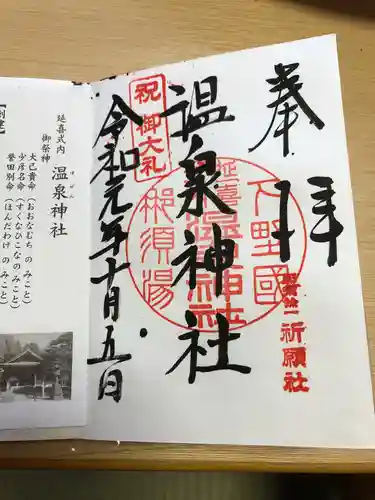 奉拝
祈願社
下野國
延喜
温泉神社
那須湯
温泉神社
祝 御大礼
令和元年十月五日
延喜式内 温泉神社
ゆぜん
御祭神
大己貴命（おおなむち のみこと）
少彦名命（すくなひこなのみこと）
誉田別命（ほんだわけ のみこと）